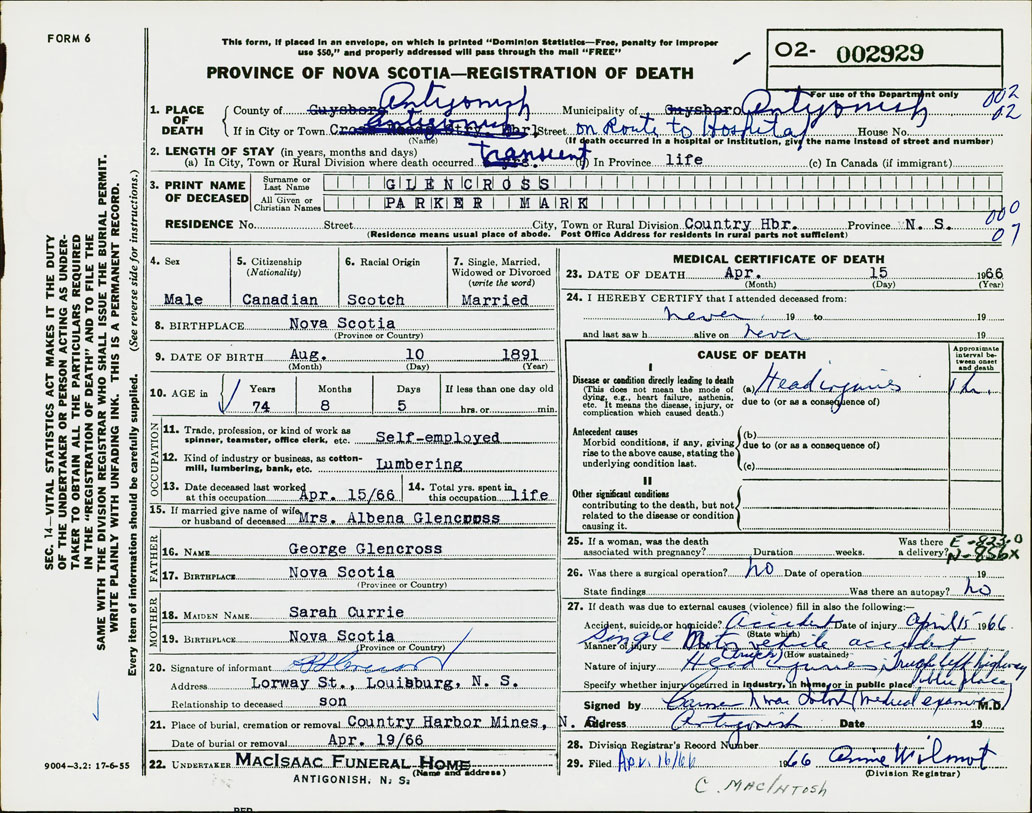 FORM 6
This form, if placed in an envelope, on which is printed "Dominion Statistics—Free, penalty for improper
use $50," and properly addressed will pass through the mail "FREE"
PROVINCE OF NOVA SCOTIA—REGISTRATION OF DEATH
O2- 002929
For use of the Department only
002
02
1. PLACE OF DEATH
County of Guysboro Antigonish Municipality of Guysboro Antigonish
If in City or Town Antigonish Street on Route to Hospital House No.
(Name) (If death occurred in a hospital or institution, give the name instead of street and number)
2. LENGTH OF STAY (in years, months and days)
(a) In City, Town or Rural Division where death occurred transient (b) In Province life (c) In Canada (if immigrant)
3. PRINT NAME OF DECEASED
Surname or Last Name GLENCROSS
All Given or Christian Names PARKER MARK
RESIDENCE No. Street City, Town or Rural Division Country Hbr. Province N. S.
(Residence means usual place of abode. Post Office Address for residents in rural parts not sufficient)
000
07
4. Sex
Male
5. Citizenship
(Nationality)
Canadian
6. Racial Origin
Scotch
7. Single, Married,
Widowed or Divorced
(write the word)
Married
8. BIRTHPLACE Nova Scotia
(Province or Country)
9. DATE OF BIRTH Aug. 10 1891
(Month) (Day) (Year)
10. AGE in
Years Months Days If less than one day old
74 8 5 hrs. or min.
OCCUPATION
11. Trade, profession, or kind of work as
spinner, teamster, office clerk, etc. Self-employed
12. Kind of industry or business, as cotton-
mill, lumbering, bank, etc. Lumbering
13. Date deceased last worked
at this occupation Apr. 15/66
14. Total yrs. spent in
this occupation life
15. If married give name of wife
or husband of deceased Mrs. Albena Glencross
FATHER
16. NAME George Glencross
17. BIRTHPLACE Nova Scotia
(Province or Country)
MOTHER
18. MAIDEN NAME Sarah Currie
19. BIRTHPLACE Nova Scotia
(Province or Country)
20. Signature of informant
Address Lorway St., Louisburg, N. S.
Relationship to deceased son
21. Place of burial, cremation or removal Country Harbor Mines, N. S.
Date of burial or removal Apr. 19/66
22. UNDERTAKER MACISAAC FUNERAL HOME
(Name and address)
ANTIGONISH, N. S.
MEDICAL CERTIFICATE OF DEATH
23. DATE OF DEATH Apr. 15 1966
(Month) (Day) (Year)
24. I HEREBY CERTIFY that I attended deceased from:
never 19 to 19
and last saw h alive on never 19
CAUSE OF DEATH
Approximate
interval be-
tween onset
and death
I
Disease or condition directly leading to death
(This does not mean the mode of
dying, e.g., heart failure, asthenia,
etc. It means the disease, injury, or
complication which caused death.)
(a) Head injuries 1 hr.
due to (or as a consequence of)
Antecedent causes
Morbid conditions, if any, giving
rise to the above cause, stating the
underlying condition last.
(b)
due to (or as a consequence of)
(c)
II
Other significant conditions
contributing to the death, but not
related to the disease or condition
causing it.
25. If a woman, was the death
associated with pregnancy? Duration weeks. Was there
a delivery?
E-823.0
N-856X
26. Was there a surgical operation? no Date of operation 19
State findings Was there an autopsy? no
27. If death was due to external causes (violence) fill in also the following:—
Accident, suicide or homicide? Accident Date of injury April 15 1966
(State which)
Manner of injury Single Motor vehicle accident
(truck) (How sustained)
Nature of injury Head injuries truck left highway
Specify whether injury occurred in industry, in home or in public place public place
Signed by (medical examiner) M.D.
Address Antigonish Date 19
28. Division Registrar's Record Number
29. Filed Apr. 16/66 1966 Annie Wilmot
(Division Registrar)
C. MACINTOSH
SEC. 14—VITAL STATISTICS ACT MAKES IT THE DUTY
OF THE UNDERTAKER OR PERSON ACTING AS UNDER-
TAKER TO OBTAIN ALL THE PARTICULARS REQUIRED
IN THE "REGISTRATION OF DEATH" AND TO FILE THE
SAME WITH THE DIVISION REGISTRAR WHO SHALL ISSUE THE BURIAL PERMIT.
WRITE PLAINLY WITH UNFADING INK. THIS IS A PERMANENT RECORD.
Every item of information should be carefully supplied. (See reverse side for instructions.)
9004-3.2: 17-6-55